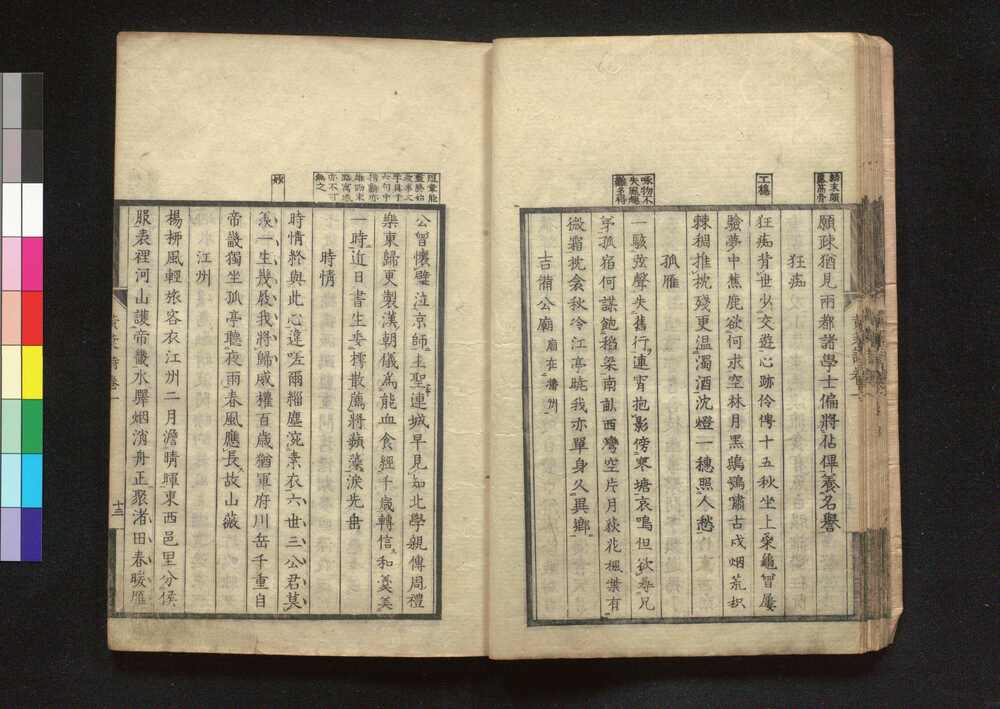 願疎猶見兩都諸學士偏將佔俾養名譽
狂痴
狂痴背世少交遊心跡伶俜十五秋坐上靈龜曾屢
驗夢中蕉鹿欲何求空林月黑鴟鴞嘯古戍烟荒枳
棘稠推枕殘更温濁酒沈燈一穗照人愁
孤雁
一駭弦聲失舊行連宵抱影傍寒塘哀鳴但欲尋兄
弟孤宿何謀飽稻粱南畝西灣空片月荻花楓葉有
微霜枕衾秋冷江亭眺我亦單身久異鄉
吉備公廟
公曾懷璧泣京師主聖連城早見知北學親傳周禮
樂東歸更製漢朝儀為能血食經千歲轉信和羹美
一時近日書生委樗散薦將蘋藻淚先垂
時情
時情於與此心違嗟爾緇塵涴素衣六世三公君莫
羨一生幾屐我將歸威權百歲猶軍府川岳千重自
帝畿獨坐孤亭聽夜雨春風應長故山薇
江州
楊柳風輕旅客衣江州二月澹晴暉東西邑里分侯
服表裡河山護帝畿水驛烟消舟正聚渚田春暖雁
工穩
咏物不
失風趣
難多得
妙
黃葉詩卷一
十三